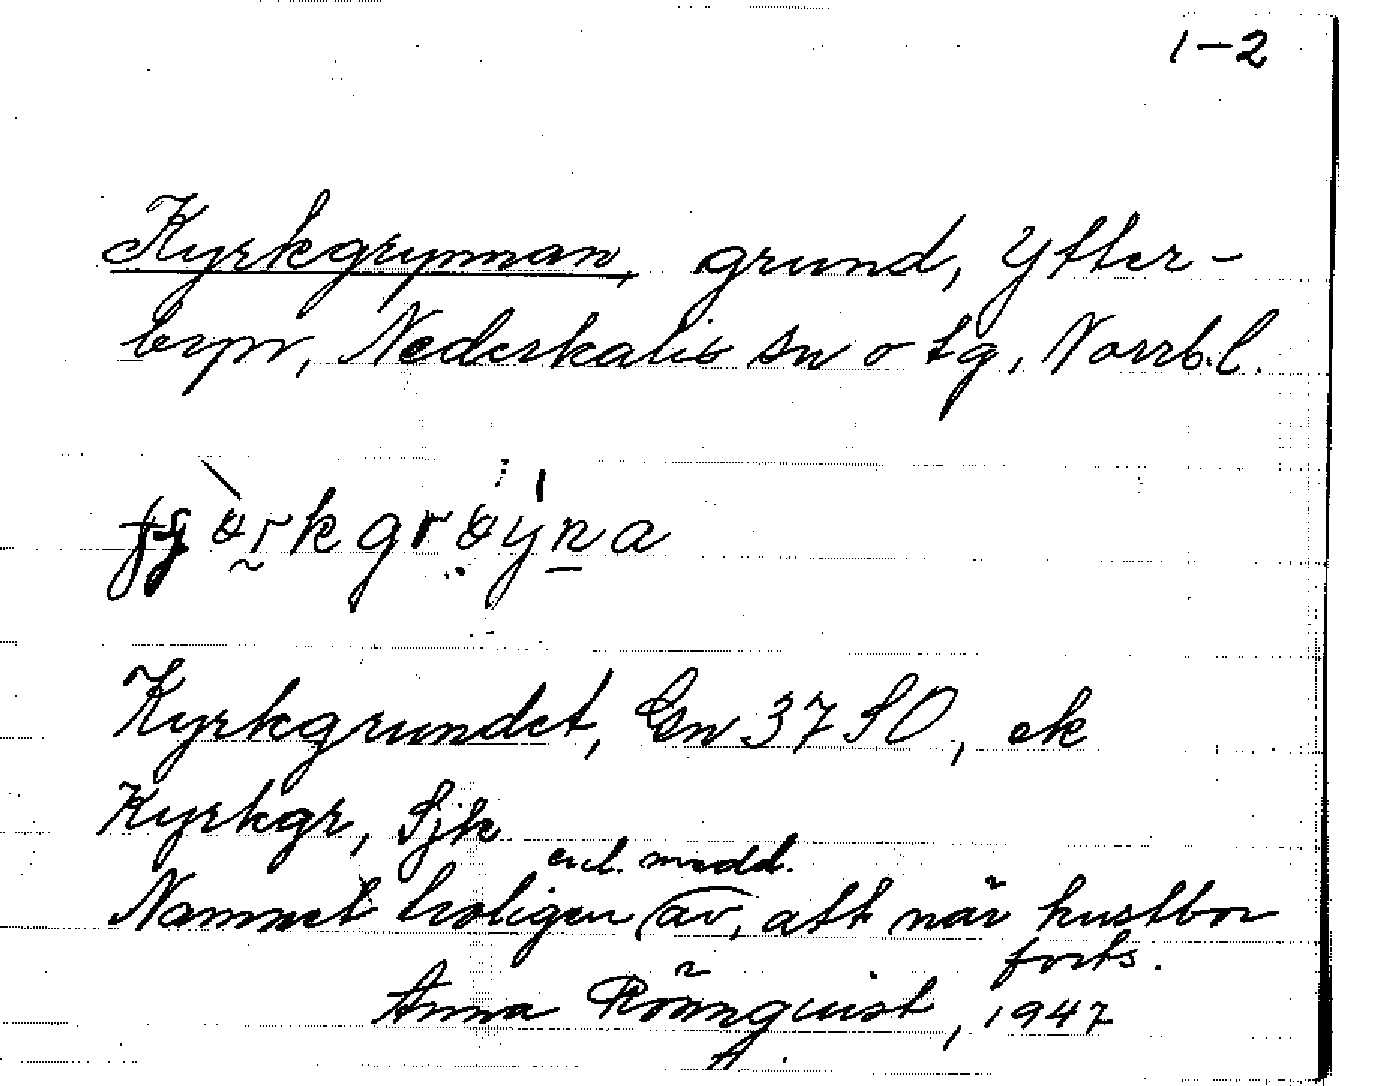 1-2
Kyrkgrynnan, grund, Ytter-
byn, Nederkalix sn o tg, Norrb.l.
Kyrkgrundet, Gn 37 SO, ek
Kyrkgr, Sjk
enl. medd.
Namnet troligen av, att när kustbor
forts.
Anna Rönnquist, 1947